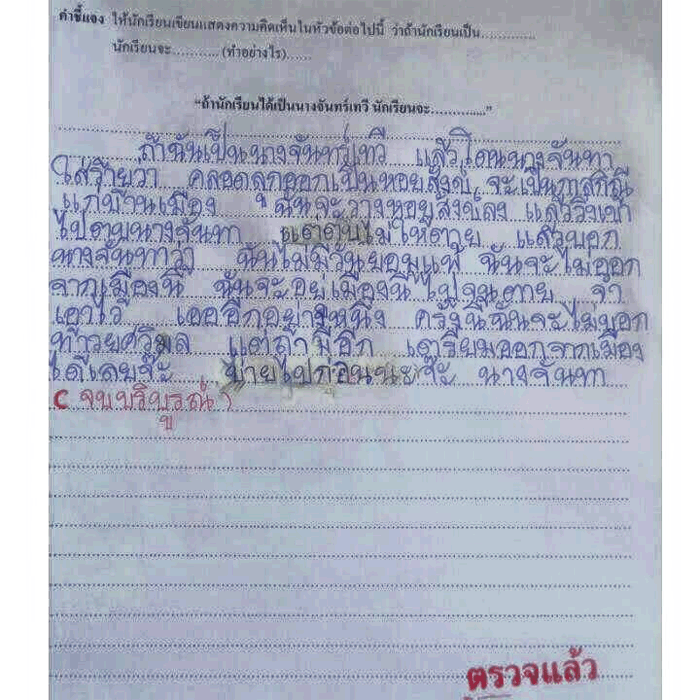 คำชี้แจง ให้นักเรียนเขียนแสดงความคิดเห็นในหัวข้อต่อไปนี้ ว่าถ้านักเรียนเป็น.............
นักเรียนจะ........... (ทำอย่างไร)......
"ถ้านักเรียนได้เป็นนางจันทร์เทวี นักเรียนจะ............."
ถ้าฉันเป็นนางจันทร์เทวี แล้วโดนนางจันทา
ใส่ร้ายว่า คลอดลูกออกเป็นหอยสังข์ จะเป็นกาลกิณี
แก่บ้านเมือง ฉันจะวางหอยสังข์ลง แล้ววิ่งเข้า
ไปตบนางจันทา แต่ตบไม่ให้ตาย แล้วบอก
นางจันทาว่า ฉันไม่มีวันยอมแพ้ ฉันจะไม่ออก
จากเมืองนี้ ฉันจะอยู่เมืองนี้ไปจนตาย จำ
เอาไว้ เออีกอย่างหนึ่ง ครั้งนี้ฉันจะไม่บอก
ท้าวยศวิมล แต่ถ้ามีอีก เตรียมออกจากเมือง
ได้เลยจ้ะ บ๊ายไปก่อนนะจ๊ะ นางจันทา
( จบบริบูรณ์ )
ตรวจแล้ว